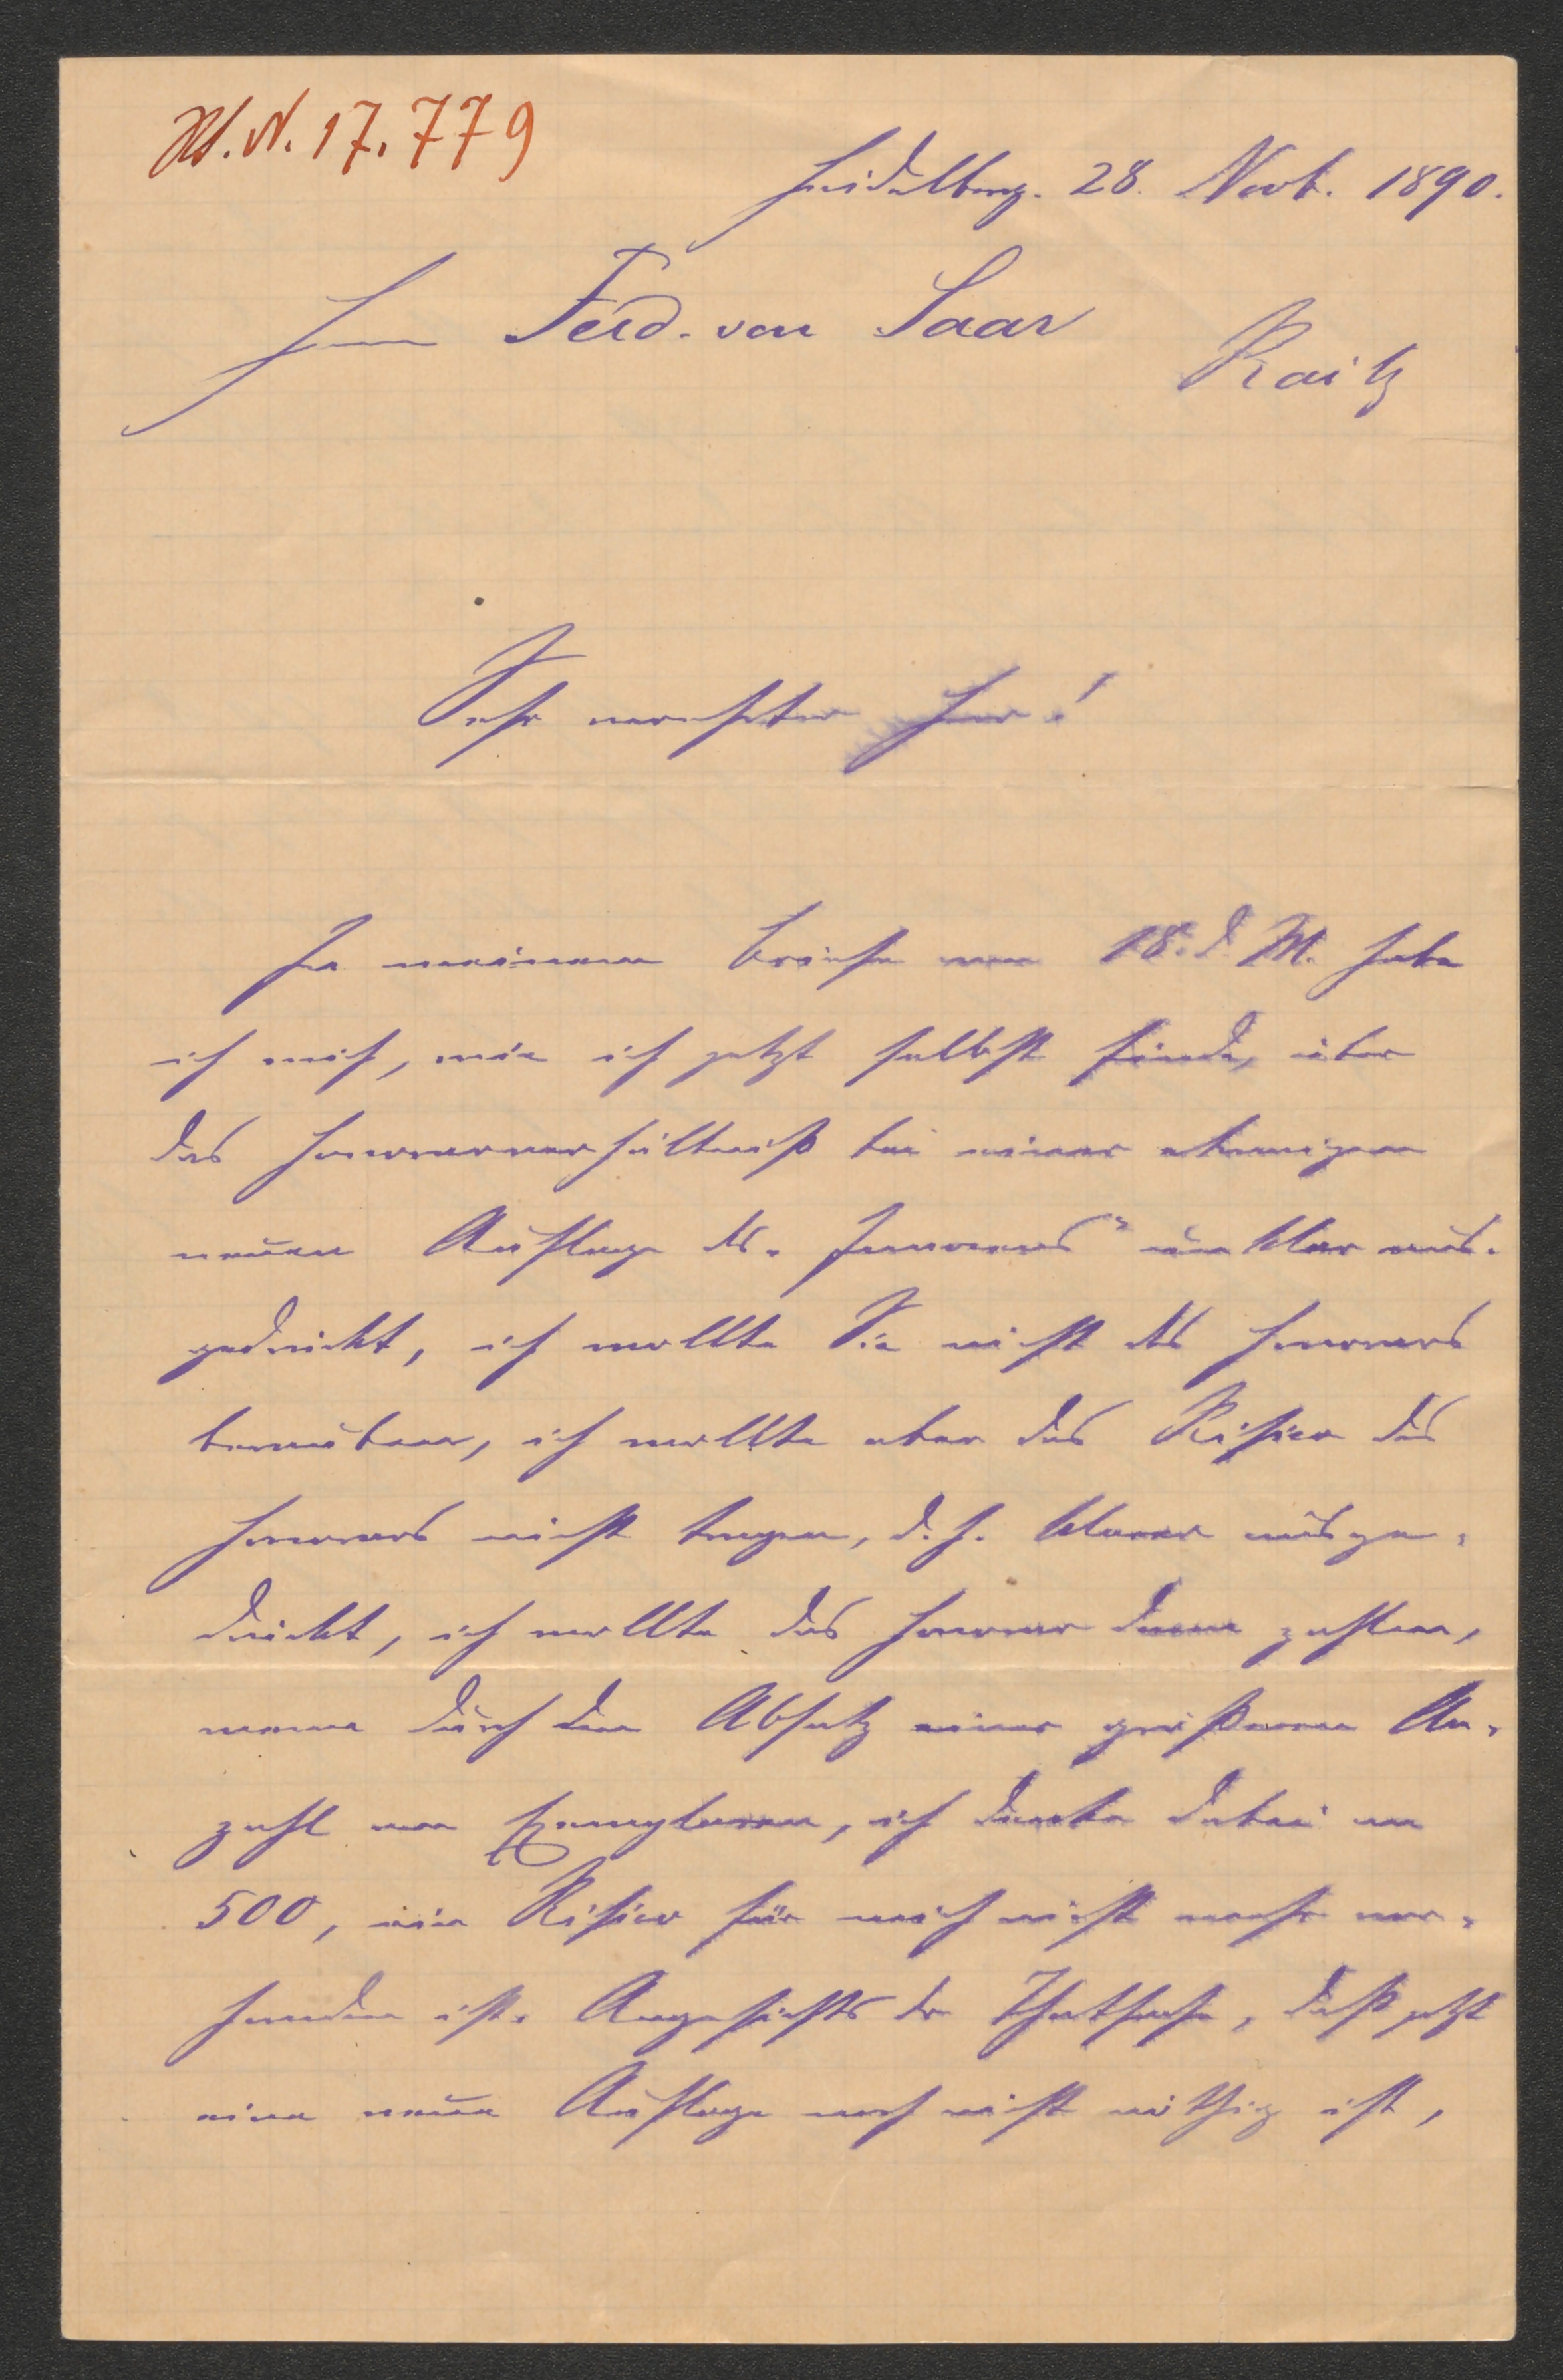 H.N. 17.779
Heidelberg. 28. Novb. 1890.
Herrn Ferd. von Saar
Raitz
Sehr verehrter Herr!
In meinem Briefe vom 18. d. M. habe
ich mich, wie ich jetzt selbst finde, über
das Honorarverhältniß bei einer etwaigen
neuen Auflage des „Innocens" unklar aus-
gedrückt, ich wollte Sie nicht des Honorars
berauben, ich wollte aber das Risico des
Honorars nicht tragen, d. h. klarer ausge-
drückt, ich wollte das Honorar dann zahlen,
wenn durch den Absatz einer größeren An-
zahl von Exemplaren, ich denke dabei an
500, ein Risico für mich nicht mehr vor-
handen ist. Angesichts der Thatsache, daß jetzt
eine neue Auflage noch nicht nöthig ist,